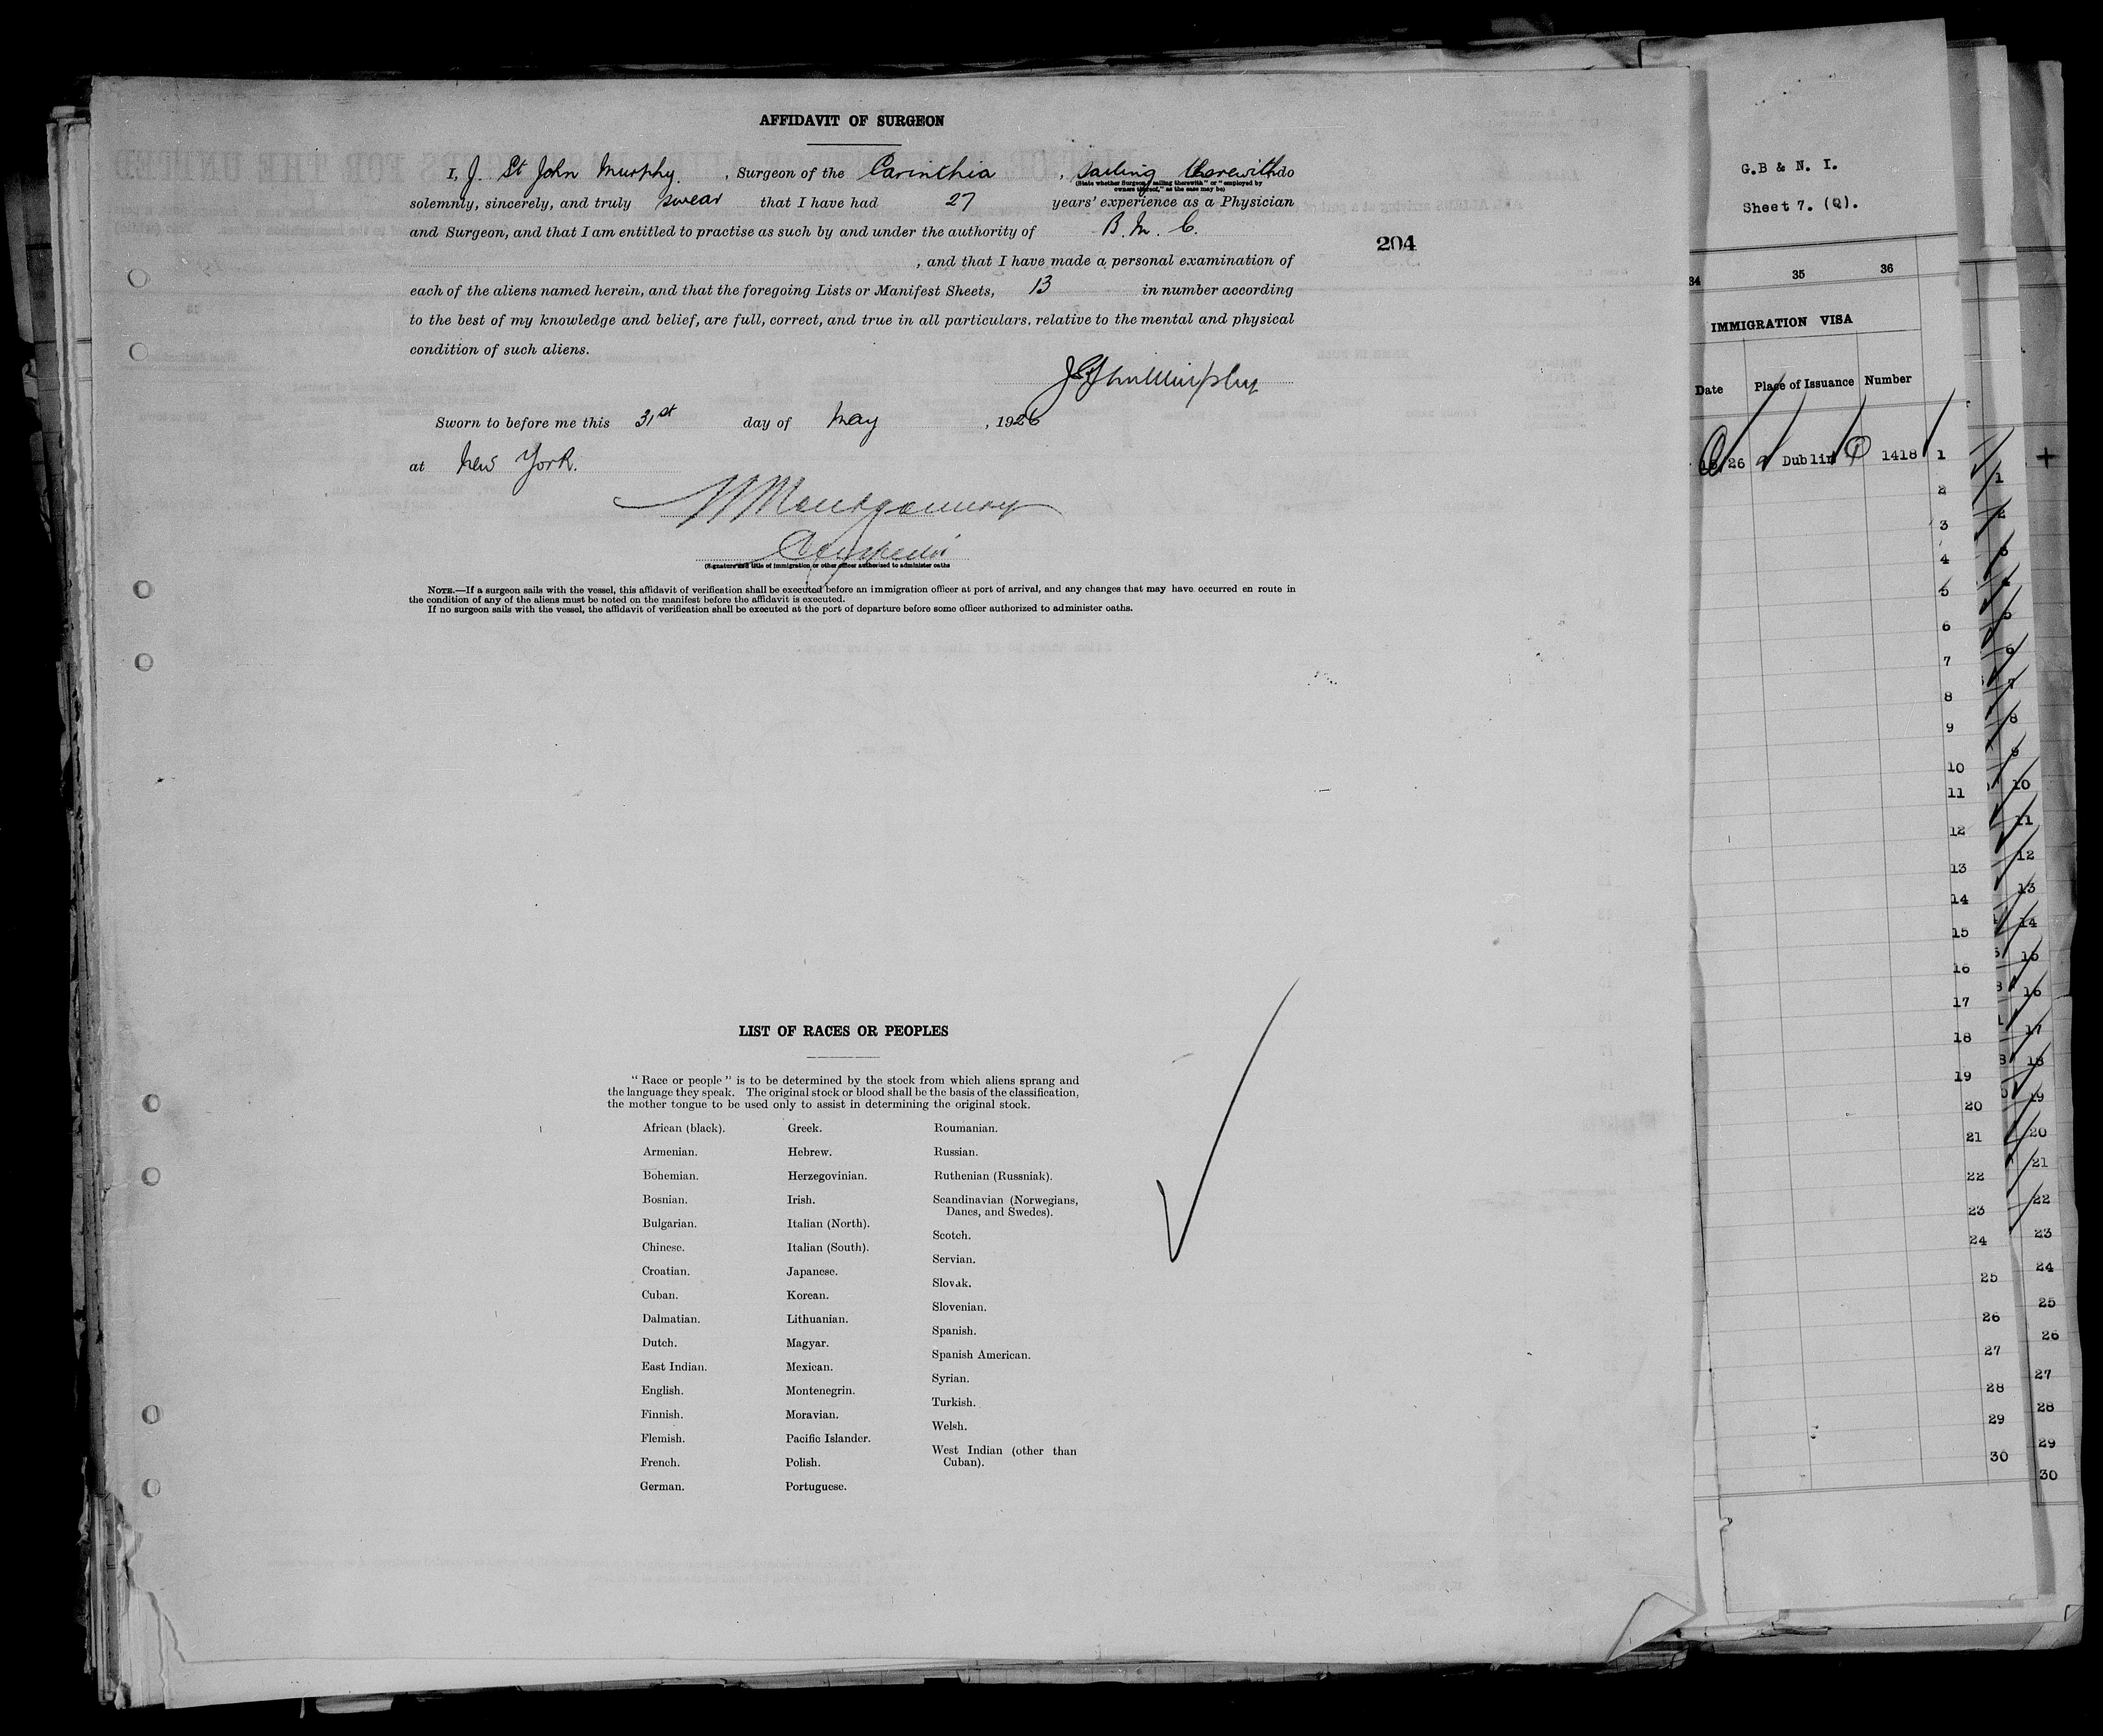 AFFIDAVIT OF SURGEON
I, J. St John Murphy. , Surgeon of the Carinthia , sailing therewith do
(State whether Surgeon "sailing therewith" or "employed by
owners thereof," as the case may be)
solemnly, sincerely, and truly swear that I have had 27 years' experience as a Physician
and Surgeon, and that I am entitled to practise as such by and under the authority of B. M. C.
, and that I have made a personal examination of
each of the aliens named herein, and that the foregoing Lists or Manifest Sheets, 13 in number according
to the best of my knowledge and belief, are full, correct, and true in all particulars, relative to the mental and physical
condition of such aliens.
J St John Murphy
Sworn to before me this 31st day of May , 1926
at New York.
Montgomery
(Signature and title of immigration or other officer authorized to administer oaths
NOTE.—If a surgeon sails with the vessel, this affidavit of verification shall be executed before an immigration officer at port of arrival, and any changes that may have occurred en route in
the condition of any of the aliens must be noted on the manifest before the affidavit is executed.
If no surgeon sails with the vessel, the affidavit of verification shall be executed at the port of departure before some officer authorized to administer oaths.
204
LIST OF RACES OR PEOPLES
" Race or people " is to be determined by the stock from which aliens sprang and
the language they speak. The original stock or blood shall be the basis of the classification,
the mother tongue to be used only to assist in determining the original stock.
African (black).
Armenian.
Bohemian.
Bosnian.
Bulgarian.
Chinese.
Croatian.
Cuban.
Dalmatian.
Dutch.
East Indian.
English.
Finnish.
Flemish.
French.
German.
Greek.
Hebrew.
Herzegovinian.
Irish.
Italian (North).
Italian (South).
Japanese.
Korean.
Lithuanian.
Magyar.
Mexican.
Montenegrin.
Moravian.
Pacific Islander.
Polish.
Portuguese.
Roumanian.
Russian.
Ruthenian (Russniak).
Scandinavian (Norwegians,
Danes, and Swedes).
Scotch.
Servian.
Slovak.
Slovenian.
Spanish.
Spanish American.
Syrian.
Turkish.
Welsh.
West Indian (other than
Cuban).
G.B & N. I.
Sheet 7. (Q).
34 35 36
IMMIGRATION VISA
Date Place of Issuance Number
26 Dublin 1418 1
2
3
4
5
6
7
8
9
10
11
12
13
14
15
16
17
18
19
20
21
22
23
24
25
26
27
28
29
30
1
2
3
4
5
6
7
8
9
10
11
12
13
14
15
16
17
18
19
20
21
22
23
24
25
26
27
28
29
30